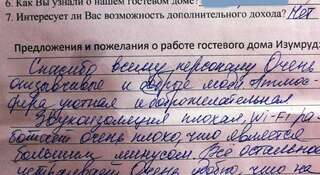 6. Как Вы узнали о нашем гостевом доме?
7. Интересует ли Вас возможность дополнительного дохода? Нет
Предложения и пожелания о работе гостевого дома Изумруд:
Спасибо всему персоналу Очень
отзывчивые и добрые люди. Атмос-
фера уютная и доброжелательная
Звукоизоляция плохая, Wi-Fi ра-
ботает очень плохо, что является
большим минусом. Всё остальное
Очень удобно, что на